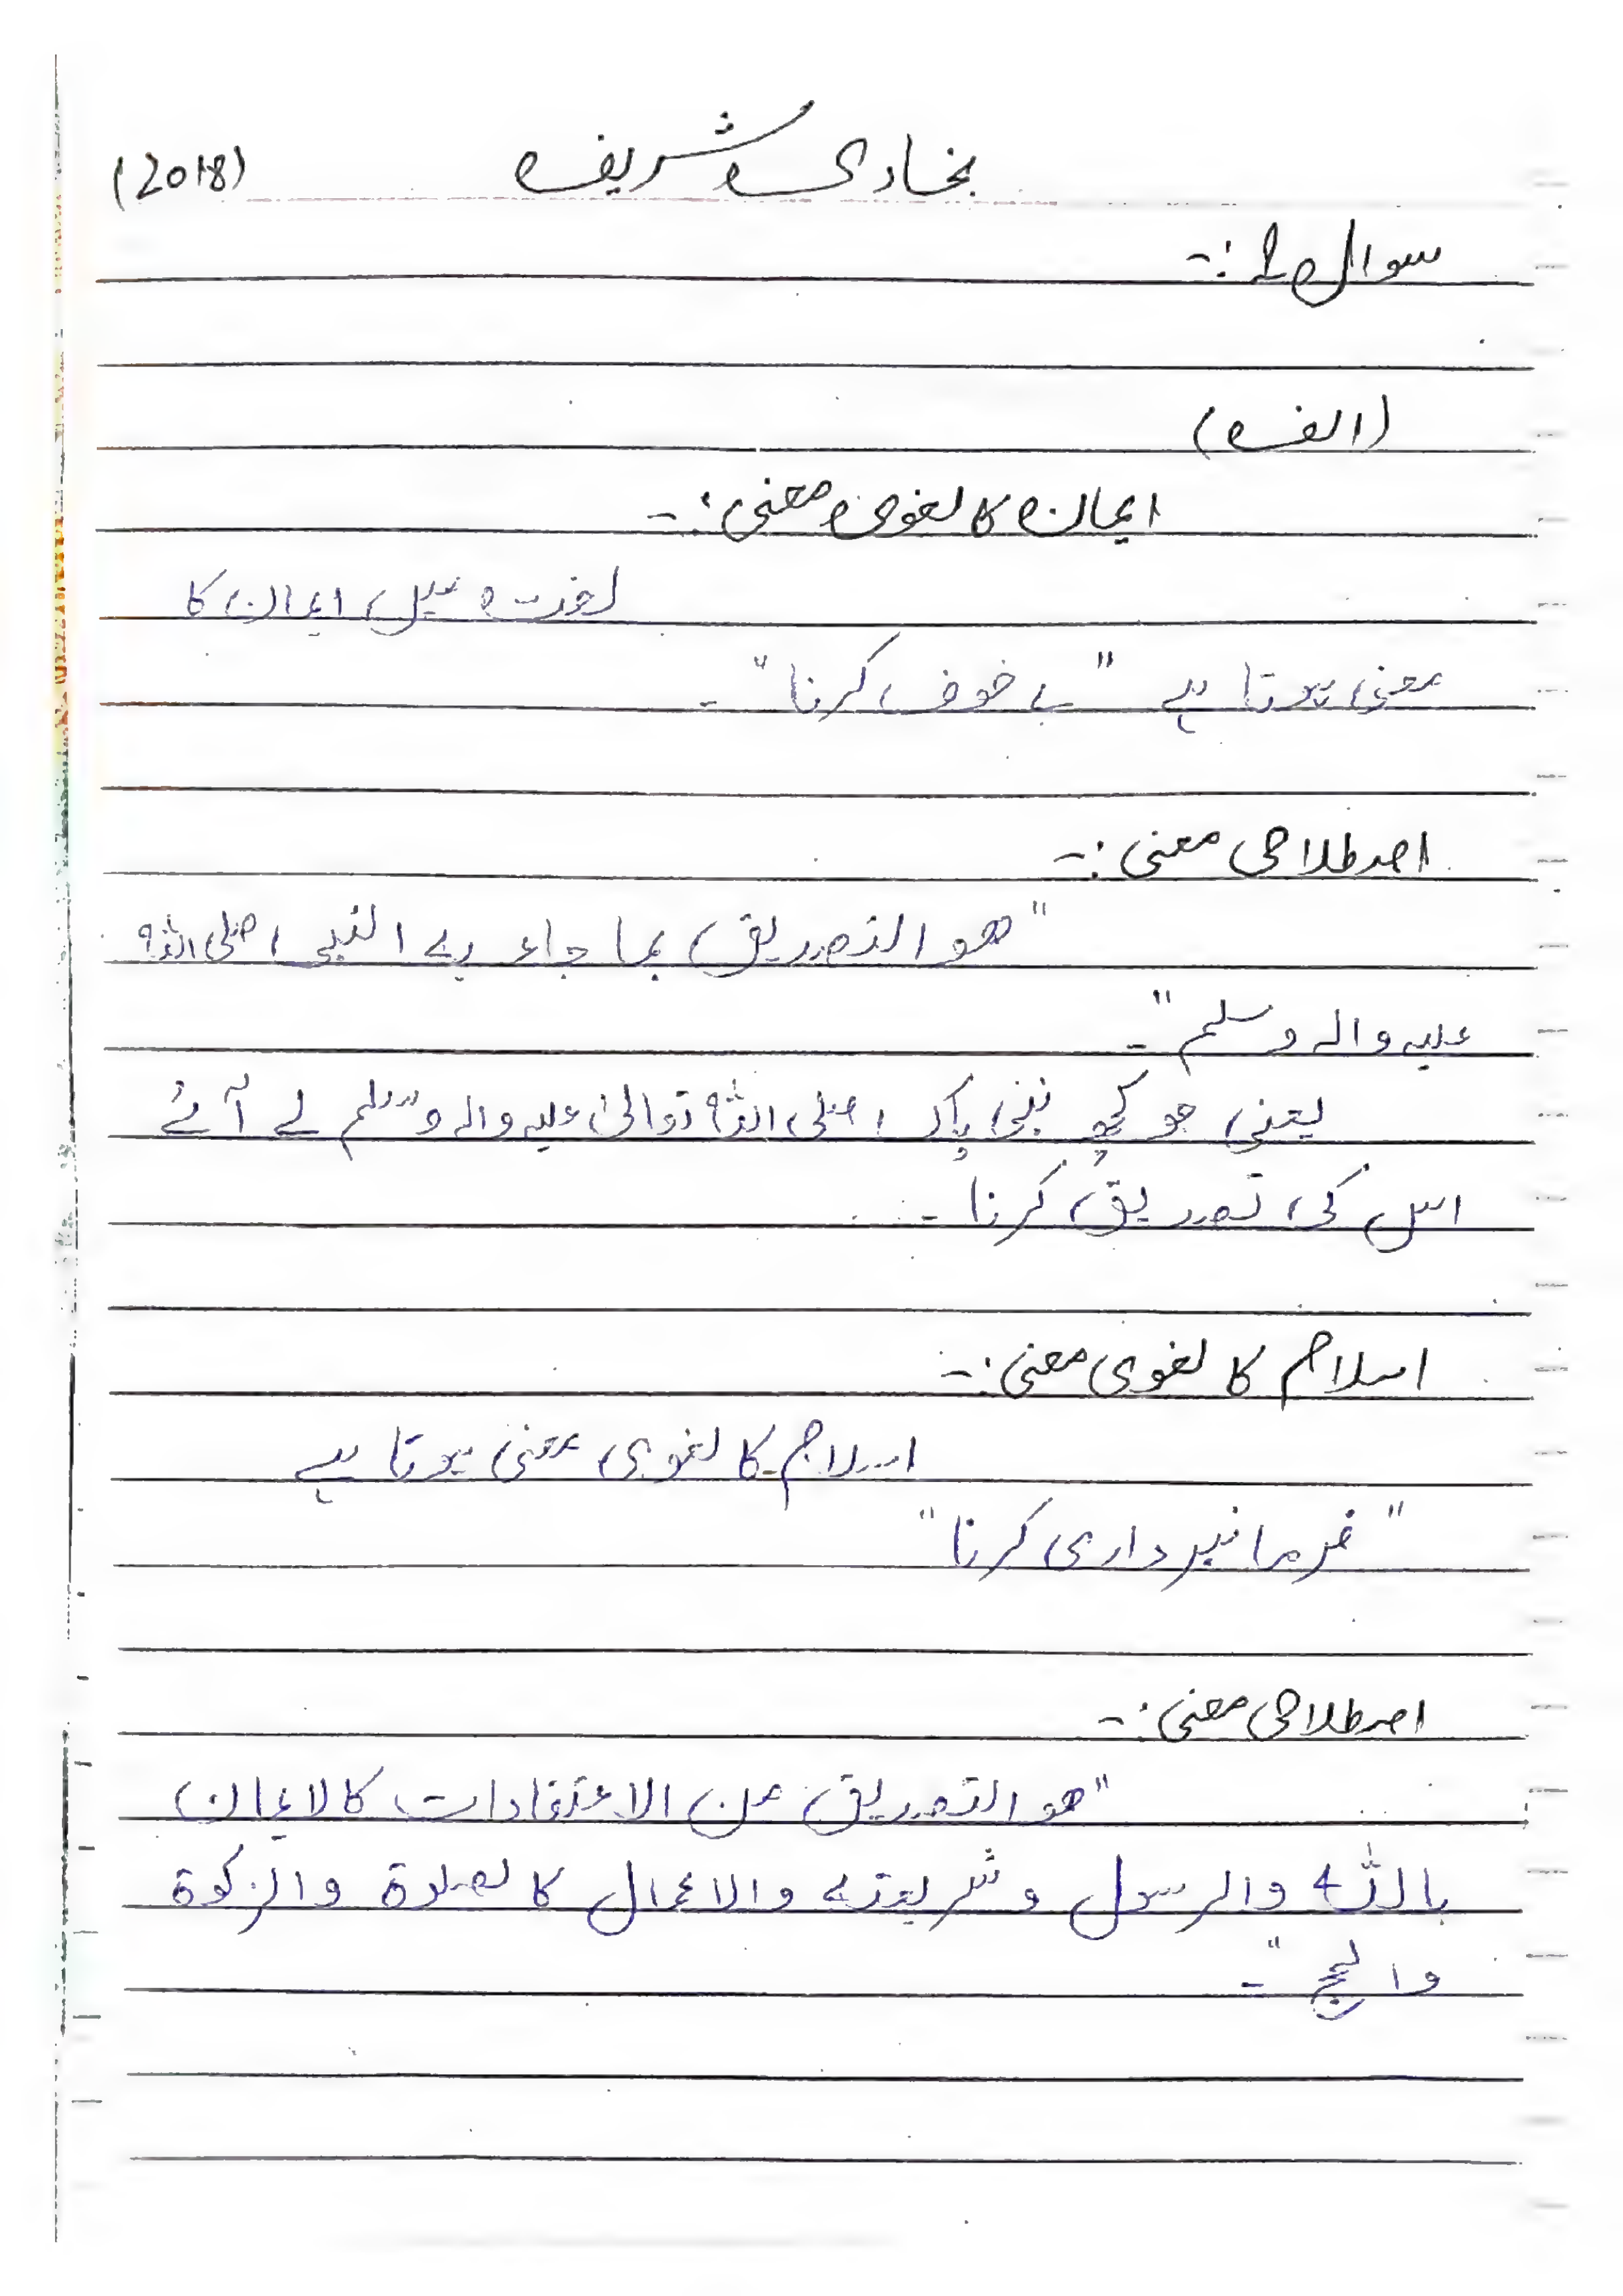 بخاری شریف (2018)
سوال 1 :-
(الف)
ایمان کا لغوی معنی :-
لغت میں ایمان کا
معنی ہوتا ہے "بے خوف کرنا" -
اصطلاحی معنی :-
"ھو التصدیق بما جاء بہ النبی صلی اللہ
علیہ والہ وسلم" -
یعنی جو کچھ نبی پاک صلی اللہ تعالیٰ علیہ والہ وسلم لے آئے
اس کی تصدیق کرنا -
اسلام کا لغوی معنی :-
اسلام کا لغوی معنی ہوتا ہے
"فرمانبرداری کرنا"
اصطلاحی معنی :-
"ھو التصدیق من الاعتقادات کالایمان
باللہ والرسول وشریعتہ والاعمال کالصلوۃ والزکوۃ
والحج" -